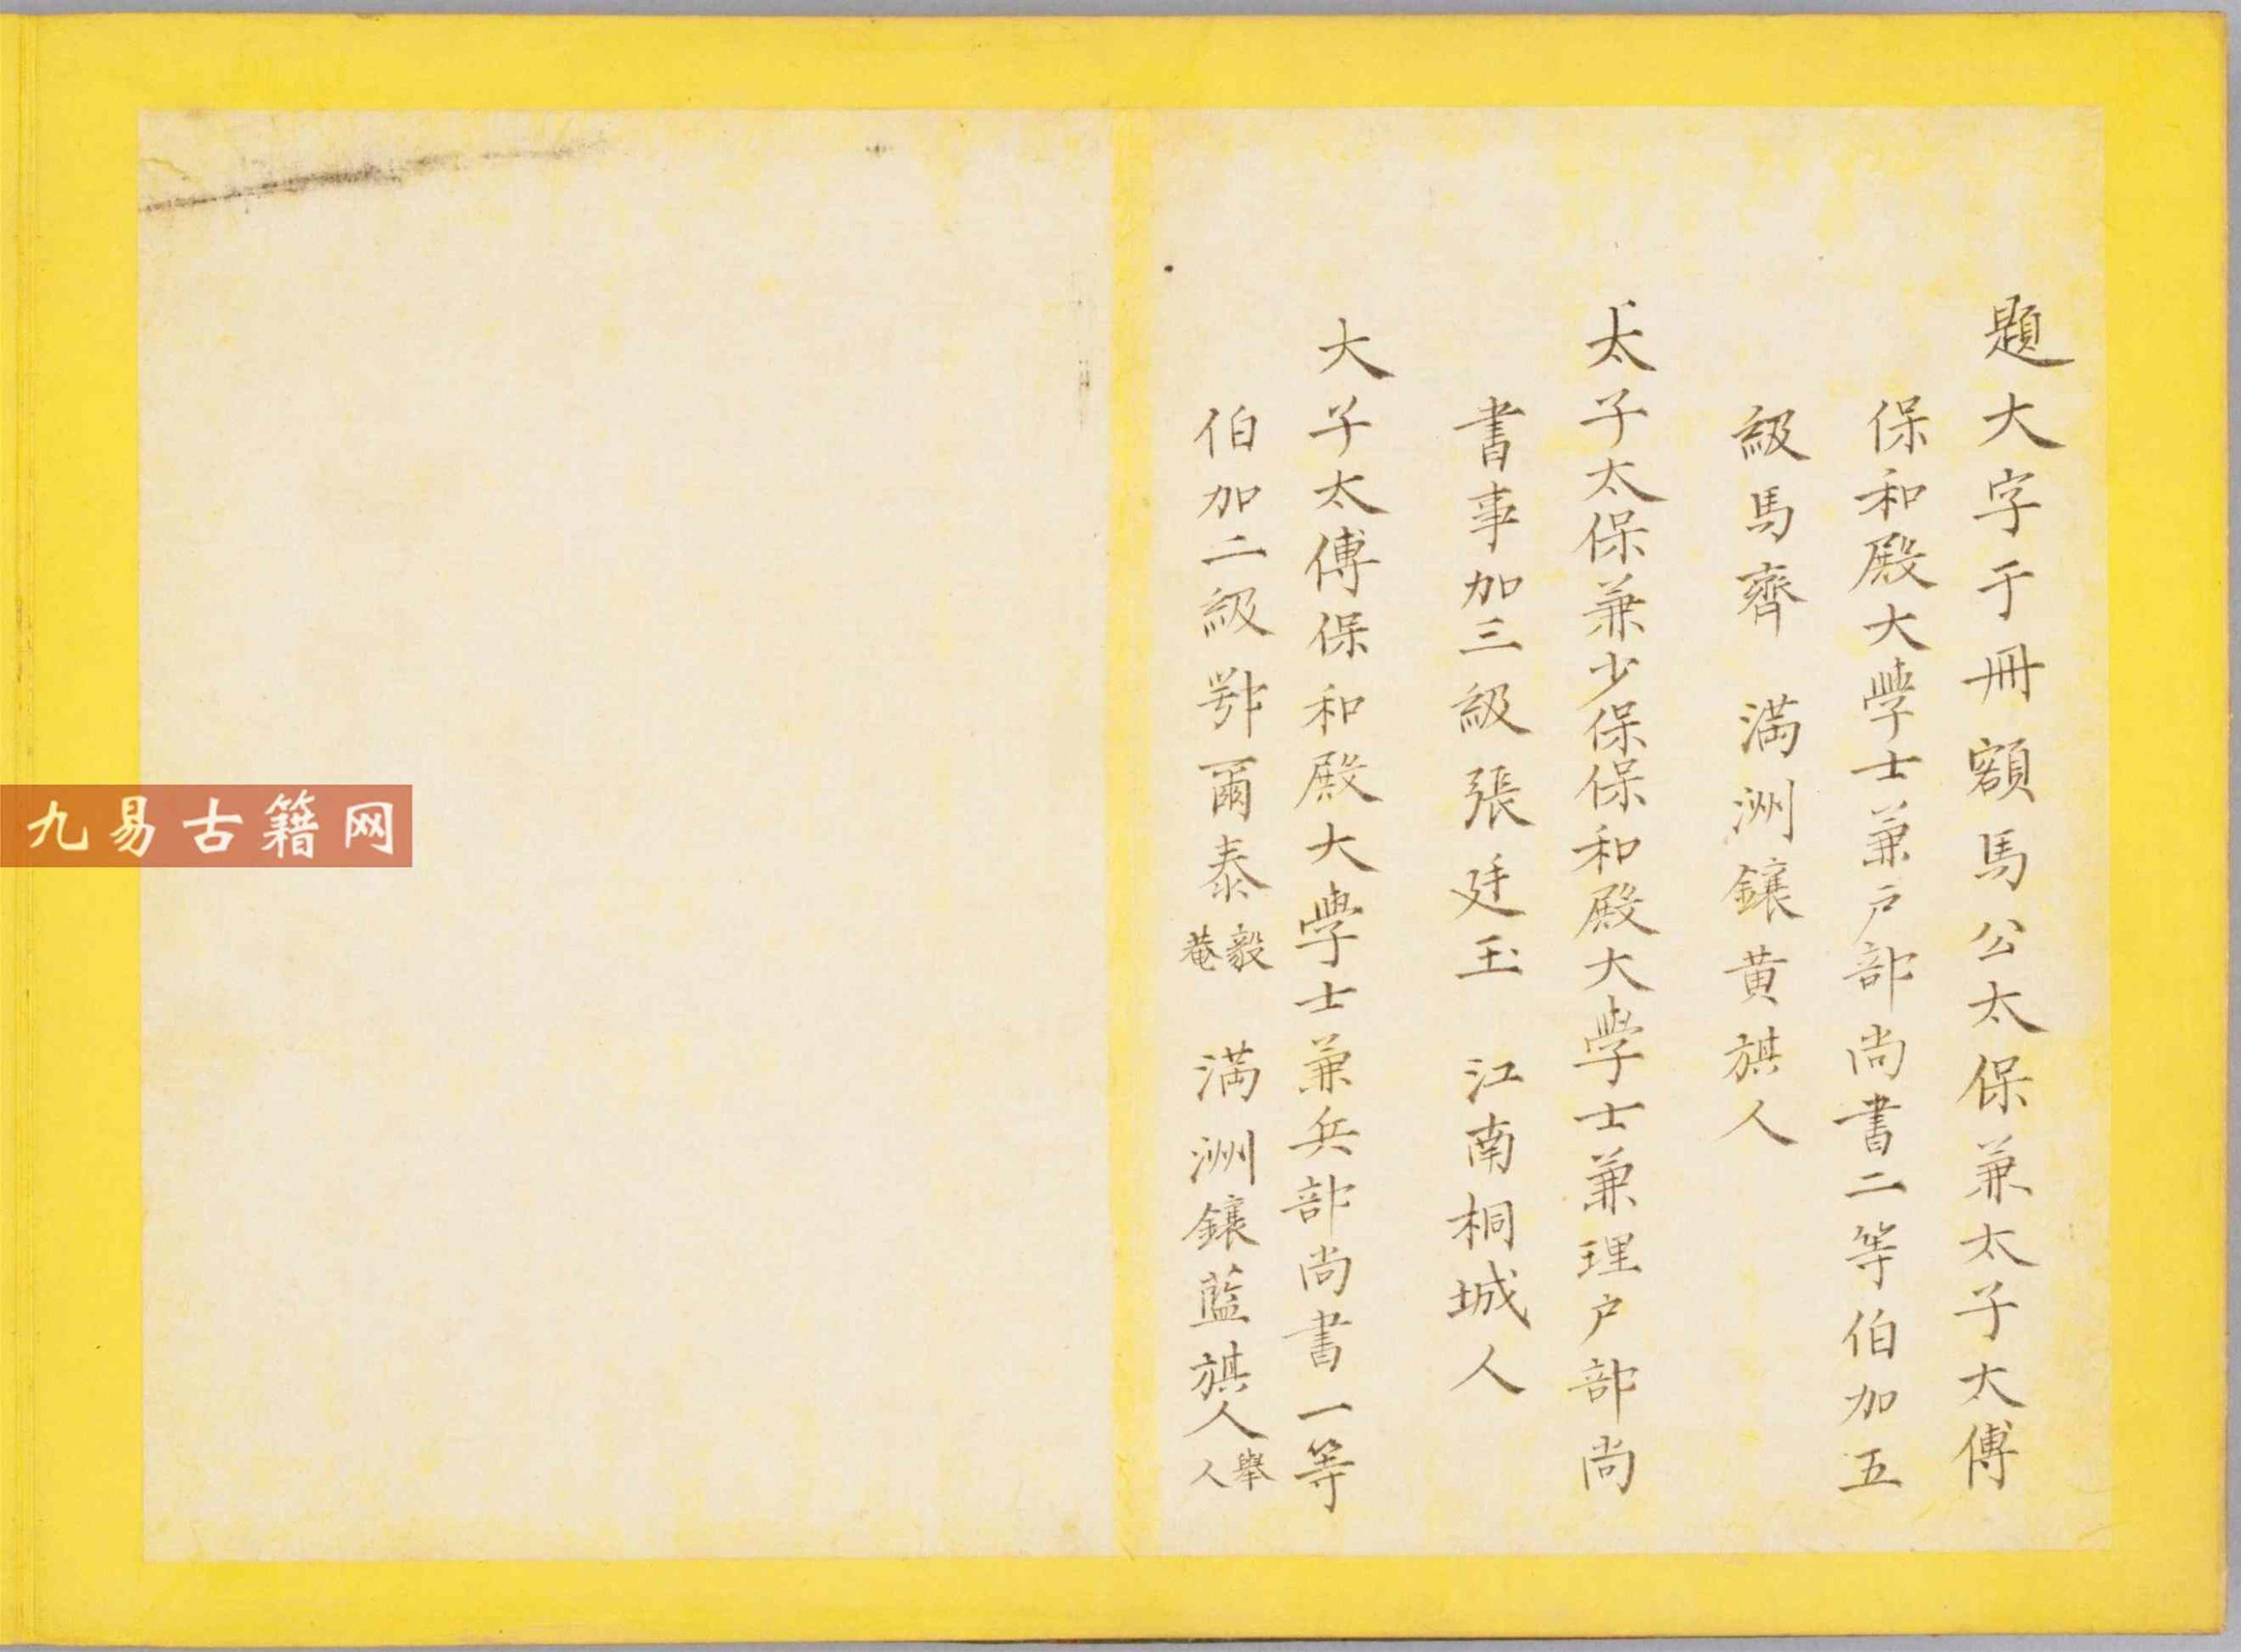 題大字于冊額馬公太保兼太子大傅
保和殿大學士兼户部尚書二等伯加五
級馬齊　滿洲鑲黄旗人
太子太保兼少保保和殿大學士兼理户部尚
書事加三級張廷玉　江南桐城人
大子太傅保和殿大學士兼兵部尚書一等
伯加二級鄂爾泰毅菴　滿洲鑲藍旗人舉人
九易古籍网